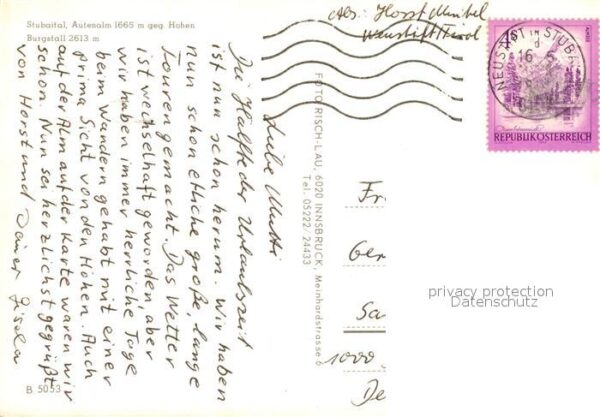 Stubaital, Autenalm 1665 m geg. Hohen
Burgstall 2613 m
Abs.: Horst
Neustift/Tirol
NEUSTIFT IM STUB
16. 5.
REPUBLIK ÖSTERREICH
Liebe Mutti
Die Hälfte der Urlaubszeit
ist nun schon herum. Wir haben
nun schon etliche große, lange
Touren gemacht. Das Wetter
ist wechselhaft geworden, aber
wir haben immer herrliche Tage
beim Wandern gehabt mit einer
prima Sicht von den Höhen. Auch
auf der Alm auf der Karte waren wir
schon. Nun sei herzlichst gegrüßt
von Horst und Deiner Gisela
FOTO RISCH-LAU, 6020 INNSBRUCK, Meinhardstrasse 6
Tel. 05222/24433
Fr
Ger
Sa
1000
De
privacy protection
Datenschutz
B 5053